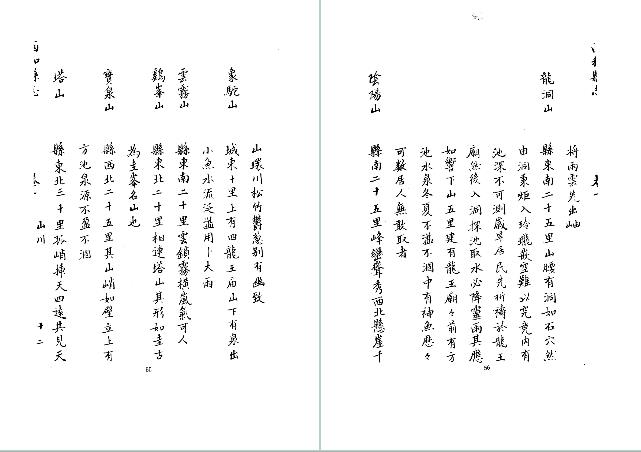 將雨雲先出岫
龍洞山 縣東南二十五里山腰有洞如石穴然
由洞東炬入玲瓏嵌空難以究竟內有
池深不可測歲旱居民先祈禱於龍王
廟然後入洞探池取水必降靈雨其應
如響下山五里建有龍王廟々前有方
池水泉冬夏不溢不涸中有神魚應々
可數居人無敢取者
陰陽山 縣南二十五里峰巒聳秀西北懸崖千
66
山環川松竹鬱蔥別有幽致
象駝山 城東十里上有四龍王廟山下有泉出
小魚水流泛溢用卜大雨
雲霧山 縣東南二十里雲鎖霧橫嵐氣可人
鷄峯山 縣東北二十里相連塔山其形如圭古
為圭峯名山也
寶泉山 縣西北二十五里其山峭如壁立上有
方池泉源不盈不涸
塔山 縣東北二十里孤峭掃天四遠共見天
西和縣志 卷一 山川 十二
60